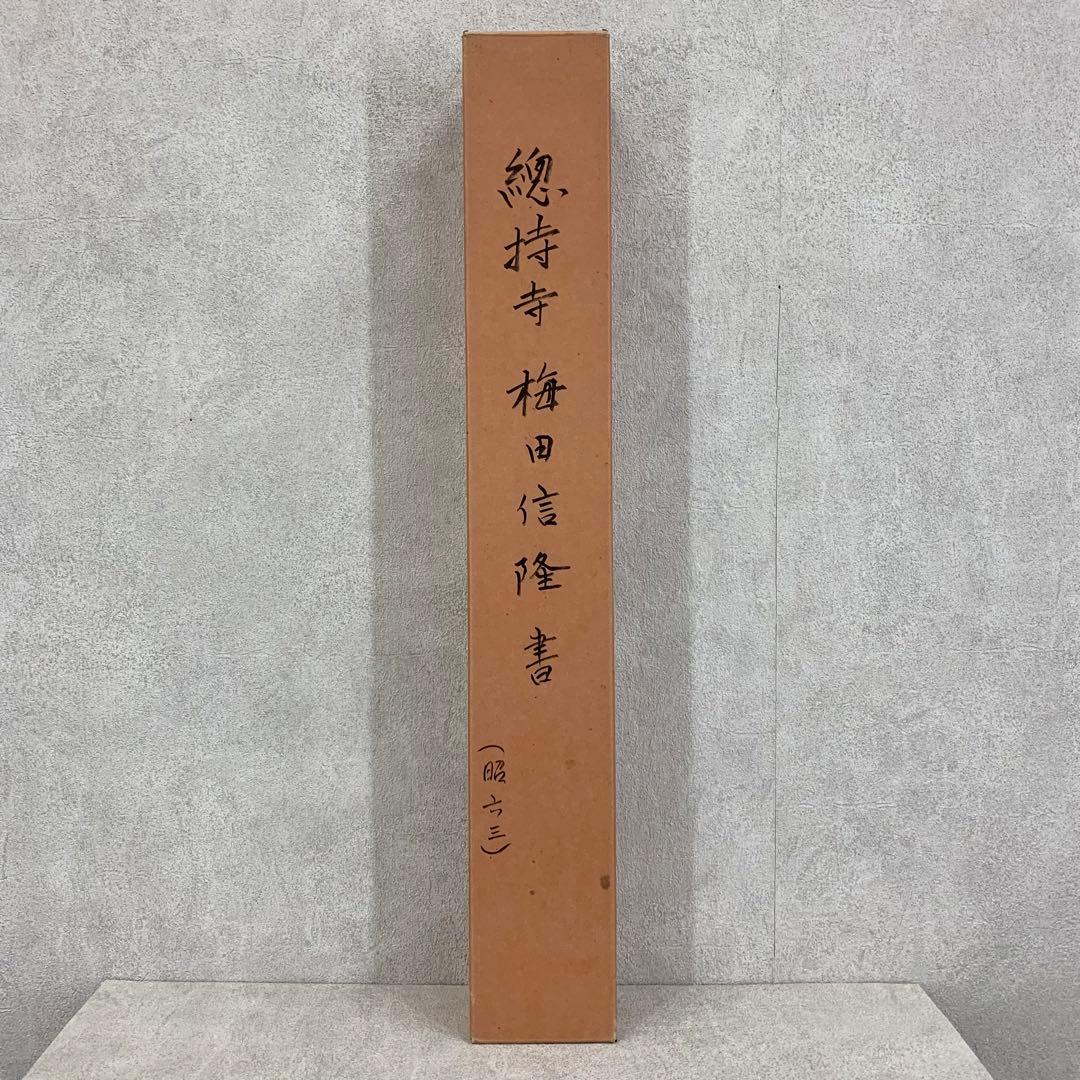 總持寺 梅田信隆 書
(昭六三)